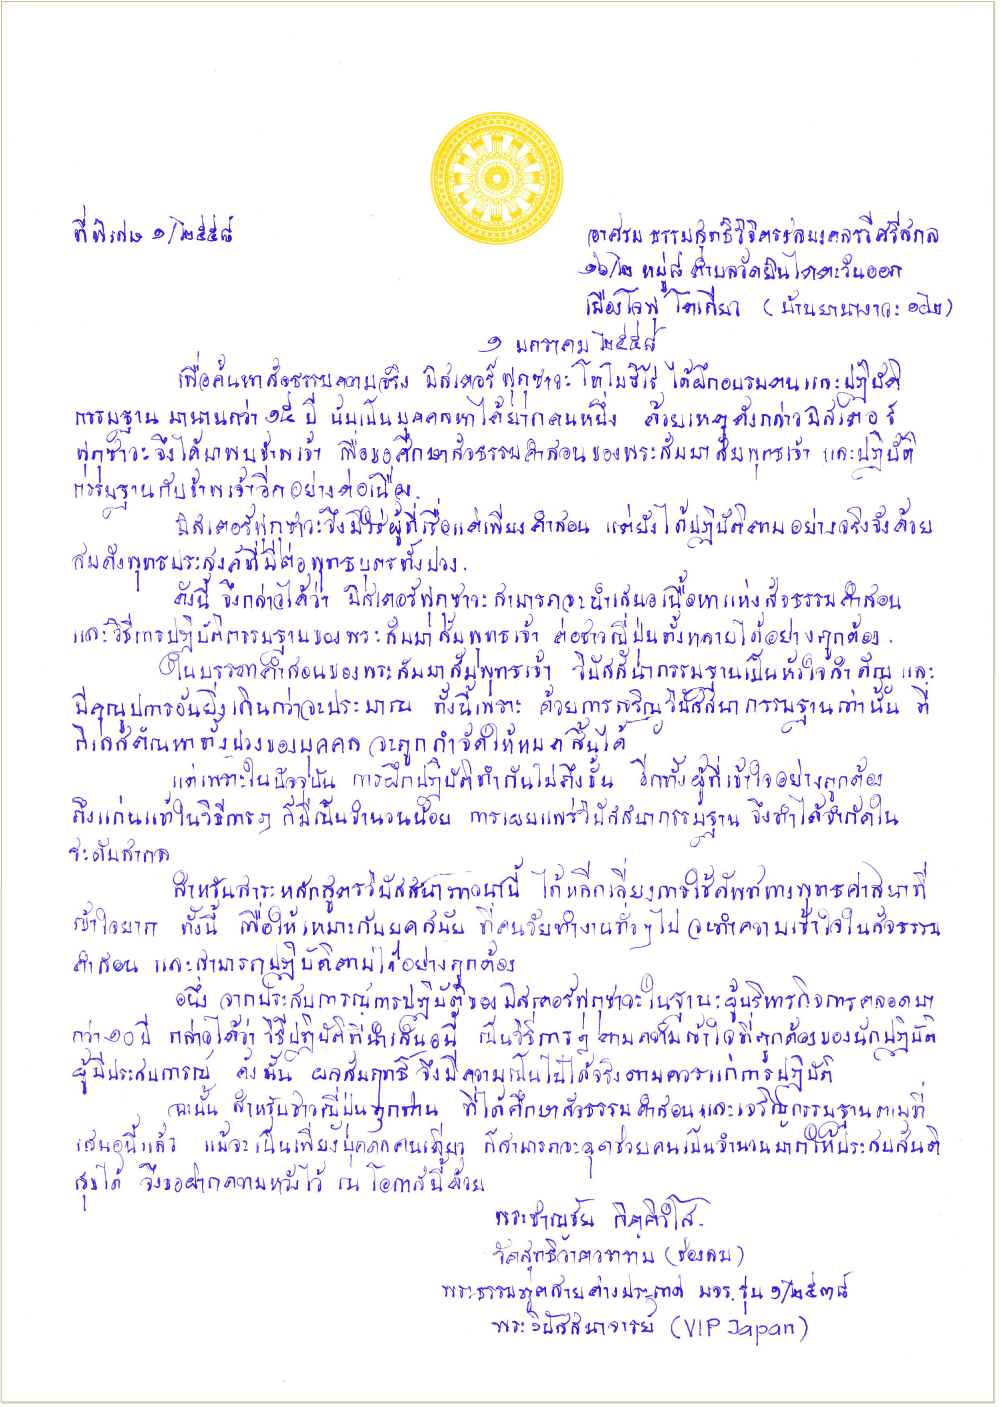 ที่พิเศษ ๑/๒๕๕๘
อาศรม ธรรมสุทธิวิจิตร
๑๖/๒ หมู่๘ ตำบล ตะวันออก
เมือง โตเกียว (บ้านยานางาวะ ๑๐๒)
๑ มกราคม ๒๕๕๘
เพื่อค้นหาสัจธรรมความจริง มิสเตอร์ฟุกุซาวะ โทโมฮิโร่ ได้ฝึกอบรมตน และปฏิบัติ
กรรมฐาน มานานกว่า ๑๕ ปี นับเป็นบุคคลหาได้ยากคนหนึ่ง ด้วยเหตุดังกล่าวมิสเตอร์
ฟุกุซาวะจึงได้มาพบข้าพเจ้า เพื่อขอศึกษาสัจธรรมคำสอนของพระสัมมาสัมพุทธเจ้า และปฏิบัติ
กรรมฐานกับข้าพเจ้าอีกอย่างต่อเนื่อง.
มิสเตอร์ฟุกุซาวะจึงมิใช่ผู้ที่เชื่อแต่เพียงคำสอน แต่ยังได้ปฏิบัติตามอย่างจริงจังด้วย
สมดังพุทธประสงค์ที่มีต่อพุทธบุตรทั้งปวง.
ดังนี้ จึงกล่าวได้ว่า มิสเตอร์ฟุกุซาวะสามารถจะนำเสนอเนื้อหาแห่งสัจธรรมคำสอน
และวิธีการปฏิบัติกรรมฐานของพระสัมมาสัมพุทธเจ้า ต่อชาวญี่ปุ่นทั้งหลายได้อย่างถูกต้อง.
ในบรรดาคำสอนของพระสัมมาสัมพุทธเจ้า วิปัสสนากรรมฐานเป็นหัวใจสำคัญ และ
มีคุณูปการอันยิ่งเกินกว่าจะประมาณ ทั้งนี้เพราะ ด้วยการเจริญวิปัสสนากรรมฐานเท่านั้น ที่
กิเลสตัณหาทั้งปวงของบุคคล จะถูกกำจัดให้หมดสิ้นได้
แต่เพราะในปัจจุบัน การฝึกปฏิบัติทำกันไม่ถึงขั้น อีกทั้งผู้ที่เข้าใจอย่างถูกต้อง
ถึงแก่นแท้ในวิธีการๆ ก็มีเป็นจำนวนน้อย การเผยแพร่วิปัสสนากรรมฐาน จึงทำได้จำกัดใน
ระดับสากล
สำหรับสาระหลักสูตรวิปัสสนาภาวนานี้ ได้หลีกเลี่ยงการใช้ศัพท์ทางพุทธศาสนาที่
เข้าใจยาก ทั้งนี้ เพื่อให้เหมาะกับยุคสมัย ที่คนวัยทำงานทั่วๆไป จะทำความเข้าใจในสัจธรรม
คำสอน และสามารถปฏิบัติตามได้อย่างถูกต้อง
อนึ่ง จากประสบการณ์การปฏิบัติของมิสเตอร์ฟุกุซาวะในฐานะผู้บริหารกิจการตลอดมา
กว่า๑๐ปี กล่าวได้ว่า วิธีปฏิบัติที่นำเสนอนี้ เป็นวิธีการๆ ตามความเข้าใจที่ถูกต้องของนักปฏิบัติ
ผู้มีประสบการณ์ ดังนั้น ผลสัมฤทธิ์ จึงมีความเป็นไปได้จริงตามควรแก่การปฏิบัติ
ฉะนั้น สำหรับชาวญี่ปุ่นทุกท่าน ที่ได้ศึกษาสัจธรรมคำสอนและเจริญกรรมฐานตามที่
เสนอนี้แล้ว แม้จะเป็นเพียงบุคคลคนเดียว ก็สามารถจะฉุดช่วยคนเป็นจำนวนมากให้ประสบสันติ
สุขได้ จึงขอฝากความหวังไว้ ณ โอกาสนี้ด้วย
พระชาญชัย กิตฺติโส.
วัดสุทธิวาตวราราม (ช่องลม)
พระธรรมทูตสายต่างประเทศ มจร.รุ่น ๑/๒๕๓๘
พระวิปัสสนาจารย์ (VIP Japan)